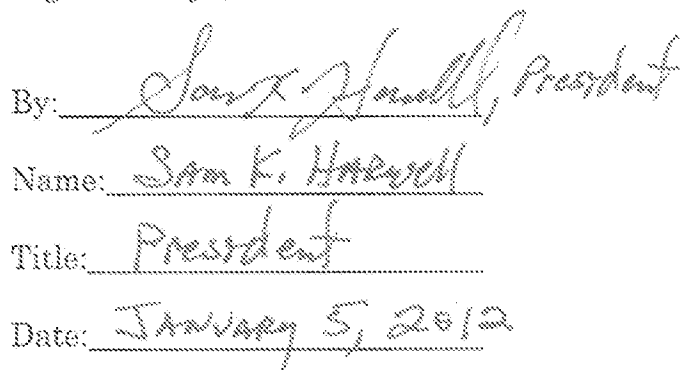 By: Sam K Harwell, President
Name: Sam K. HARWell
Title: President
Date: JANUARY 5, 2012